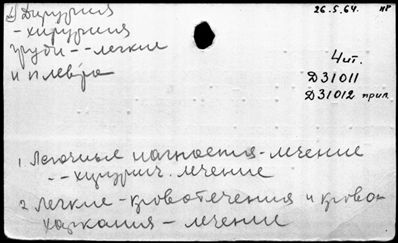 2) Хирургия
- хирургия
груди -- легкие
и плевра
26.5.64. нр
Чит.
Д31011
Д31012 прил.
1. Легочные нагноения - лечение
-- хирургич. лечение
2. Легкие - кровотечения и крово
харкания - лечение